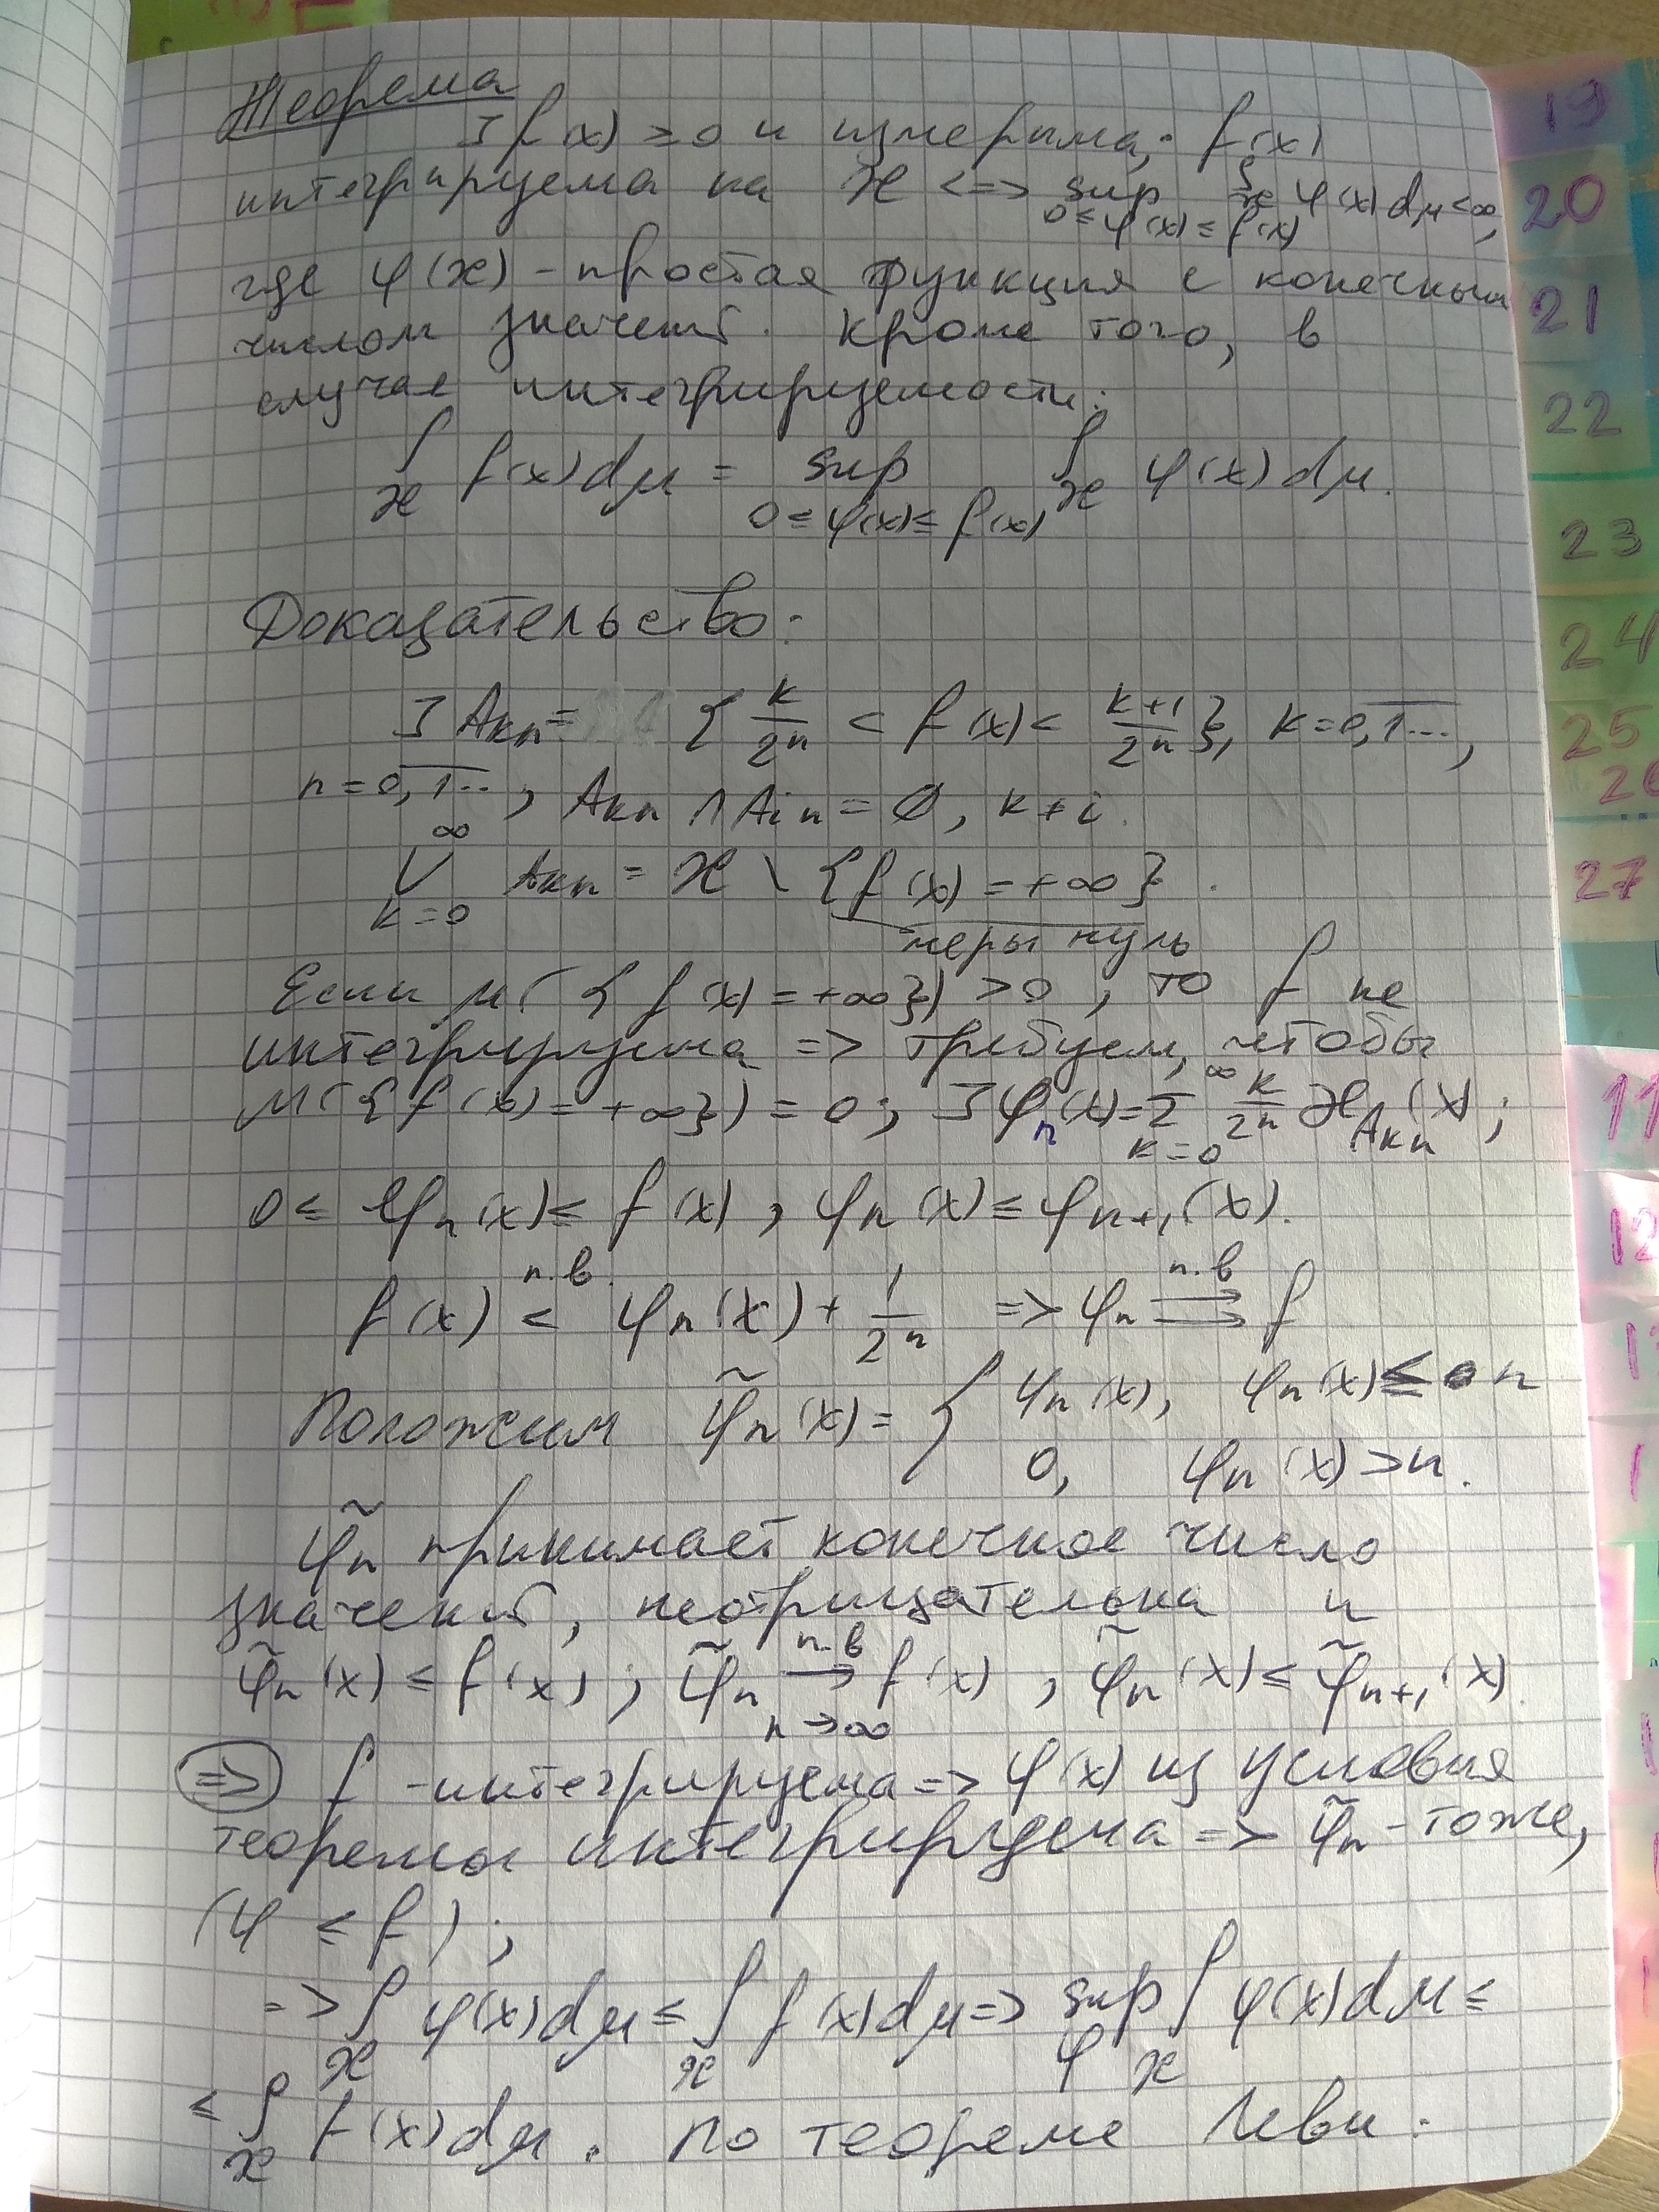 Теорема
∃ f(x) ≥ 0 и измерима; f(x)
интегрируема на 𝒳 <=> sup ∫ φ(x) dμ < ∞,
𝒳
0 ≤ φ(x) ≤ f(x)
где φ(x) - простая функция с конечным
числом значений. Кроме того, в
случае интегрируемости:
∫ f(x) dμ = sup ∫ φ(x) dμ.
𝒳 0 ≤ φ(x) ≤ f(x) 𝒳
Доказательство:
∃ A_kn = { k/2^n < f(x) < (k+1)/2^n }, k = 0,1...,
n = 0,1..; A_kn ∩ A_in = ∅, k ≠ i.
∞
∪ A_kn = 𝒳 \ {f(x) = +∞}.
k=0
меры нуль
Если μ({ f(x) = +∞}) > 0, то f не
интегрируема => требуем, чтобы
μ({f(x) = +∞}) = 0; ∃ φ_n(x) = ∑_{k=0}^∞ k/2^n 𝒳_{A_kn}(x);
0 ≤ φ_n(x) ≤ f(x), φ_n(x) ≤ φ_{n+1}(x).
п.в. п.в
f(x) < φ_n(x) + 1/2^n => φ_n ⇉ f
Положим φ̃_n(x) = { φ_n(x), φ_n(x) ≤ n
0, φ_n(x) > n.
φ̃_n принимает конечное число
значений, неотрицательна и
п.в
φ̃_n(x) ≤ f(x); φ̃_n → f(x), φ̃_n(x) ≤ φ̃_{n+1}(x)
n→∞
=> f - интегрируема => φ(x) из условия
теоремы интегрируема => φ̃_n - тоже,
(φ ≤ f);
=> ∫ φ(x) dμ ≤ ∫ f(x) dμ => sup ∫ φ(x) dμ ≤
𝒳 𝒳 φ 𝒳
≤ ∫ f(x) dμ. По теореме Леви:
𝒳
19
20
21
22
23
24
25
26
27
11
12